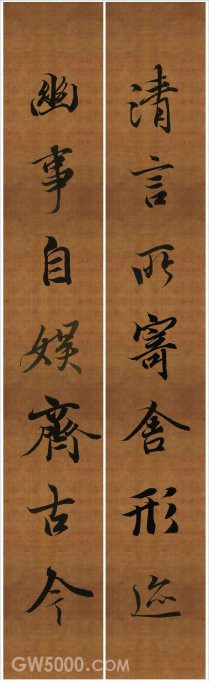 清言所寄舍形迹
幽事自娱齊古今
GW5000.com